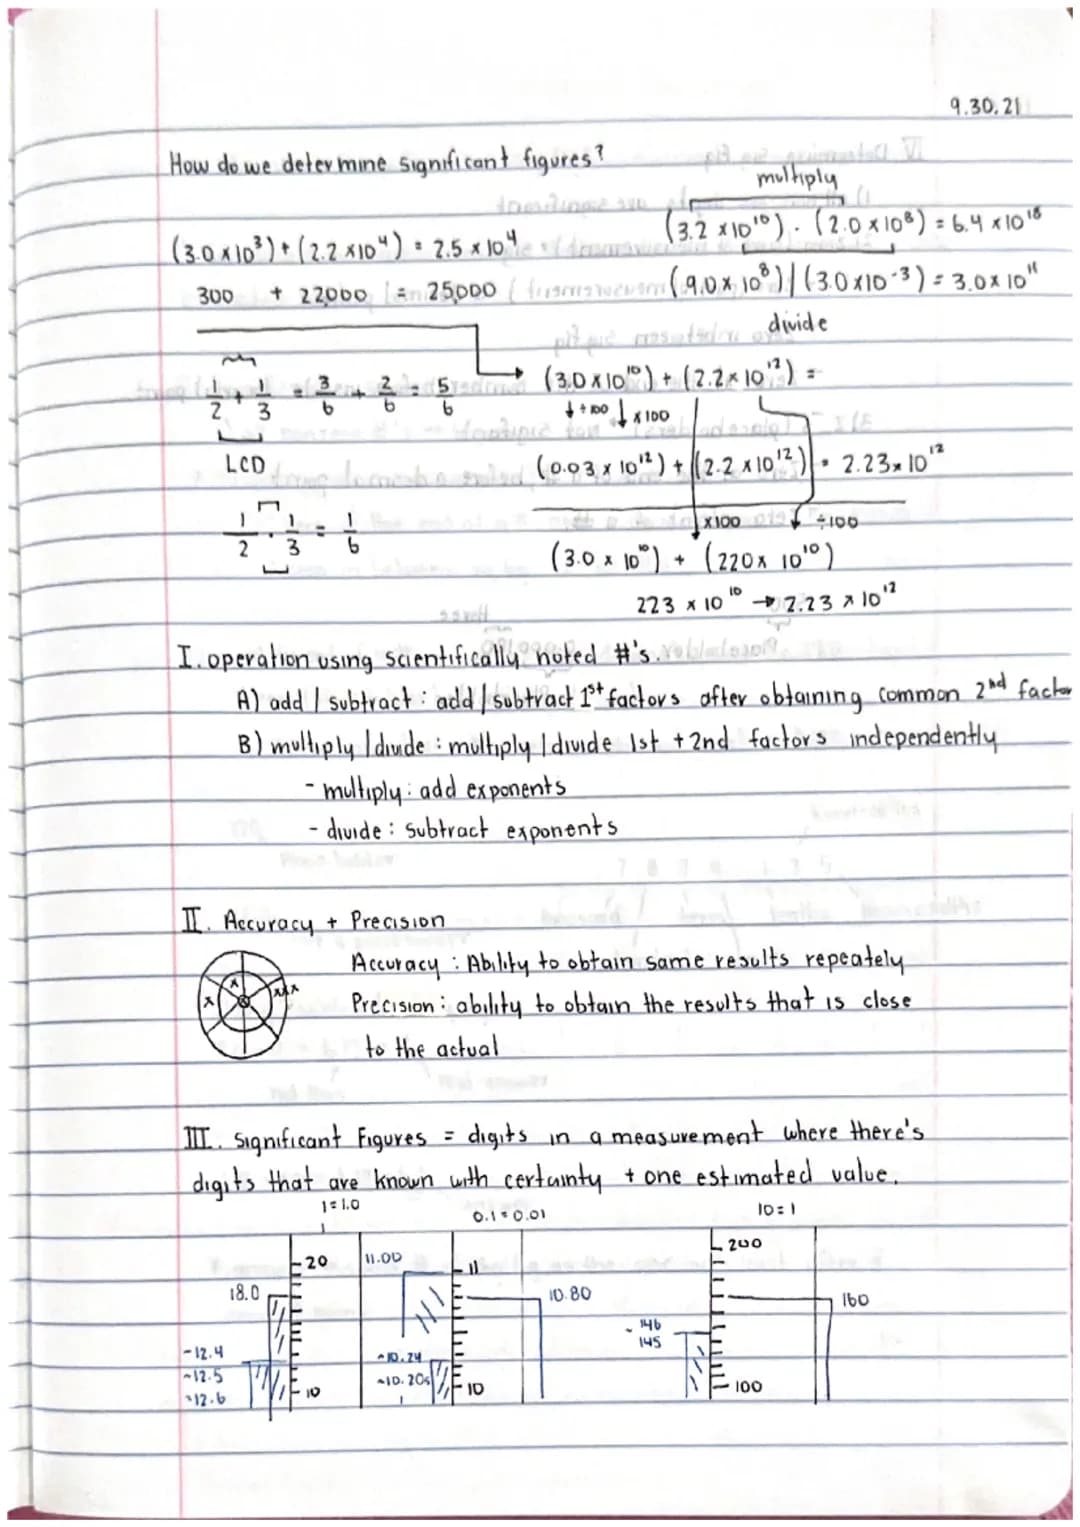 9.30.21
How do we determine significant figures?
multiply
(3.2 x 10¹⁰) · (2.0 x 10⁸) = 6.4 x 10¹⁸
(3.0 x 10³) + (2.2 x 10⁴) = 2.5 x 10⁴
(9.0 x 10⁸) / (3.0 x 10⁻³) = 3.0 x 10¹¹
300 + 22000 = 25,000
divide
1/2 + 1/3 = 3/6 + 2/6 = 5/6
(3.0 x 10¹⁰) + (2.2 x 10¹²) =
÷100 x100
LCD
(0.03 x 10¹²) + (2.2 x 10¹²) = 2.23 x 10¹²
1/2 · 1/3 = 1/6
x100 ÷100
(3.0 x 10¹⁰) + (220 x 10¹⁰)
223 x 10¹⁰ → 2.23 x 10¹²
I. operation using scientifically noted #'s.
A) add / subtract : add / subtract 1st factors after obtaining common 2nd factor
B) multiply / divide : multiply / divide 1st + 2nd factors independently
- multiply : add exponents
- divide : subtract exponents
II. Accuracy + Precision
Accuracy : Ability to obtain same results repeately
x x xxx
Precision : ability to obtain the results that is close
to the actual
III. Significant Figures = digits in a measurement where there's
digits that are known with certainty + one estimated value.
1 = 1.0
0.1 = 0.01
10 = 1
20
11.00
11
200
18.0
10.80
160
~146
145
~12.4
~12.5
~12.6
~10.24
10
10
100